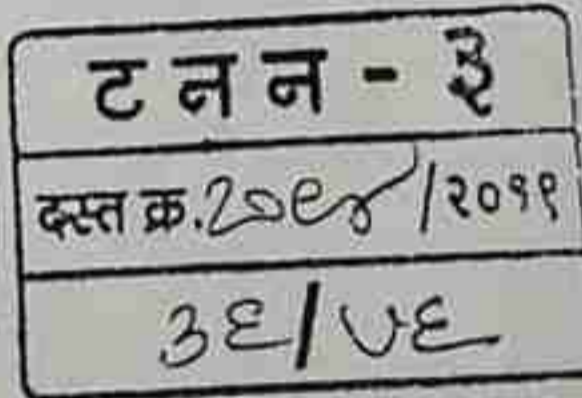 ट न न - ३
दस्त क्र.२०९४/२०१९
३६/५६